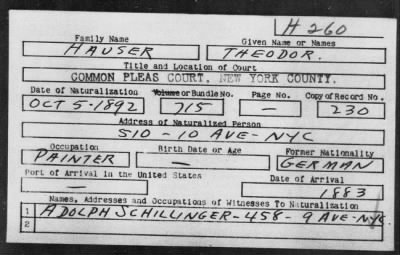 H 260
Family Name Given Name or Names
HAUSER THEODOR.
Title and Location of Court
COMMON PLEAS COURT, NEW YORK COUNTY.
Date of Naturalization Volume or Bundle No. Page No. Copy of Record No.
OCT 5-1892 715 — 230
Address of Naturalized Person
510-10 AVE-NYC
Occupation Birth Date or Age Former Nationality
PAINTER — GERMAN
Port of Arrival in the United States Date of Arrival
— 1883
Names, Addresses and Occupations of Witnesses To Naturalization
1 ADOLPH SCHILLINGER-458-9 AVE-NYC
2